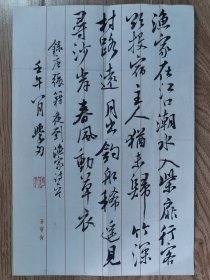 渔家在江口潮水入柴扉行客
欲投宿主人犹未归竹深
村路远月出钓船稀遥见
寻沙岸春风动草衣
录唐张籍夜到渔家诗一首
壬午八月学习